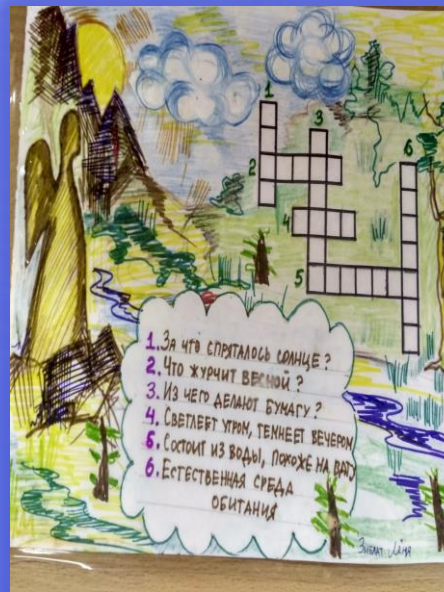 1
3
6
2
4
5
1. ЗА ЧТО СПРЯТАЛОСЬ СОЛНЦЕ?
2. ЧТО ЖУРЧИТ ВЕСНОЙ?
3. ИЗ ЧЕГО ДЕЛАЮТ БУМАГУ?
4. СВЕТЛЕЕТ УТРОМ, ТЕМНЕЕТ ВЕЧЕРОМ
5. СОСТОИТ ИЗ ВОДЫ, ПОХОЖЕ НА ВАТУ
6. ЕСТЕСТВЕННАЯ СРЕДА
ОБИТАНИЯ
Лёня